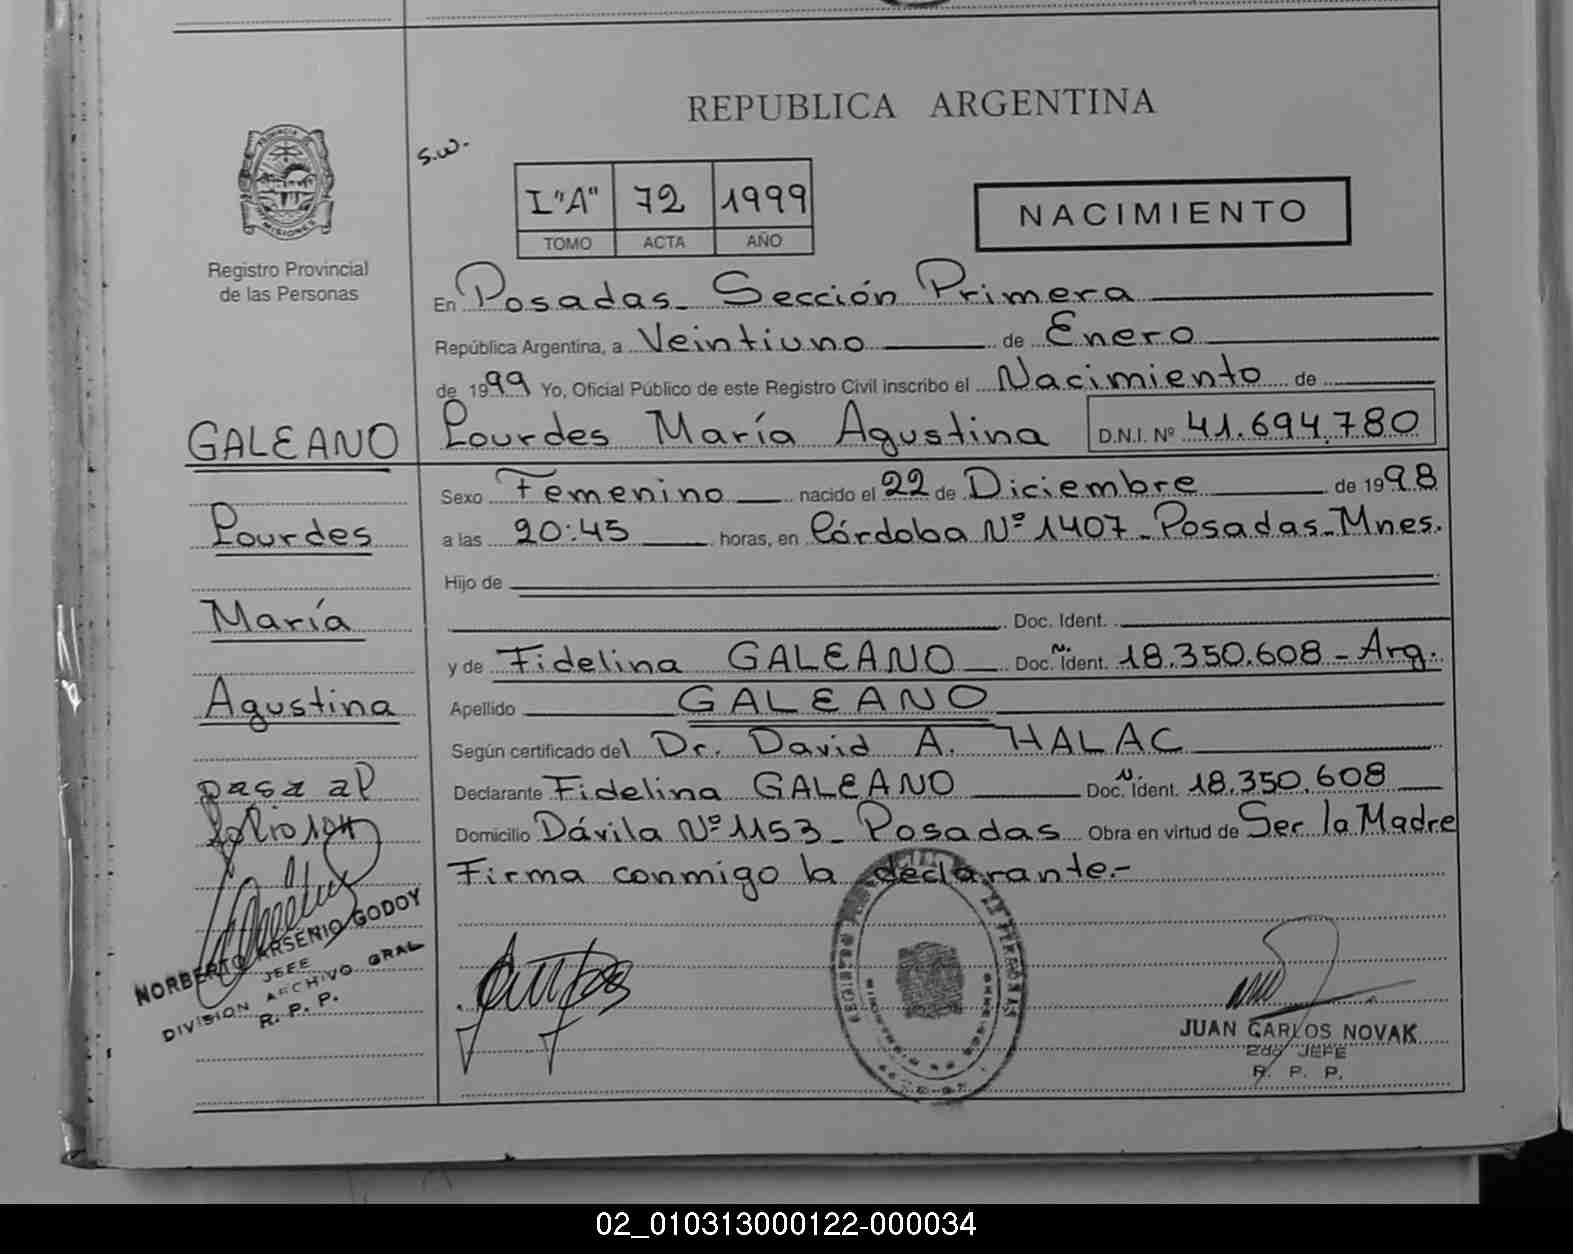 REPUBLICA ARGENTINA
s.w.
PROVINCIA
MISIONES
Registro Provincial
de las Personas
I"A" 72 1999
TOMO ACTA AÑO
NACIMIENTO
En Posadas - Sección Primera
República Argentina, a Veintiuno de Enero
de 1999 Yo, Oficial Público de este Registro Civil inscribo el Nacimiento de
Lourdes María Agustina D.N.I. Nº 41.694.780
Sexo Femenino nacido el 22 de Diciembre de 1998
a las 20:45 horas, en Córdoba Nº 1407 - Posadas - Mnes.
Hijo de
Doc. Ident.
y de Fidelina GALEANO Doc. N. Ident. 18.350.608 - Arg.
Apellido GALEANO
Según certificado del Dr. David A. HALAC
Declarante Fidelina GALEANO Doc. N. Ident. 18.350.608
Domicilio Dávila Nº 1153 - Posadas Obra en virtud de Ser la Madre
Firma conmigo la declarante.-
GALEANO
Lourdes
María
Agustina
pasa al
folio
NORBERTO ARSENIO GODOY
JEFE
DIVISION ARCHIVO GRAL
R. P. P.
JUAN CARLOS NOVAK
2do JEFE
R. P. P.
02_010313000122-000034